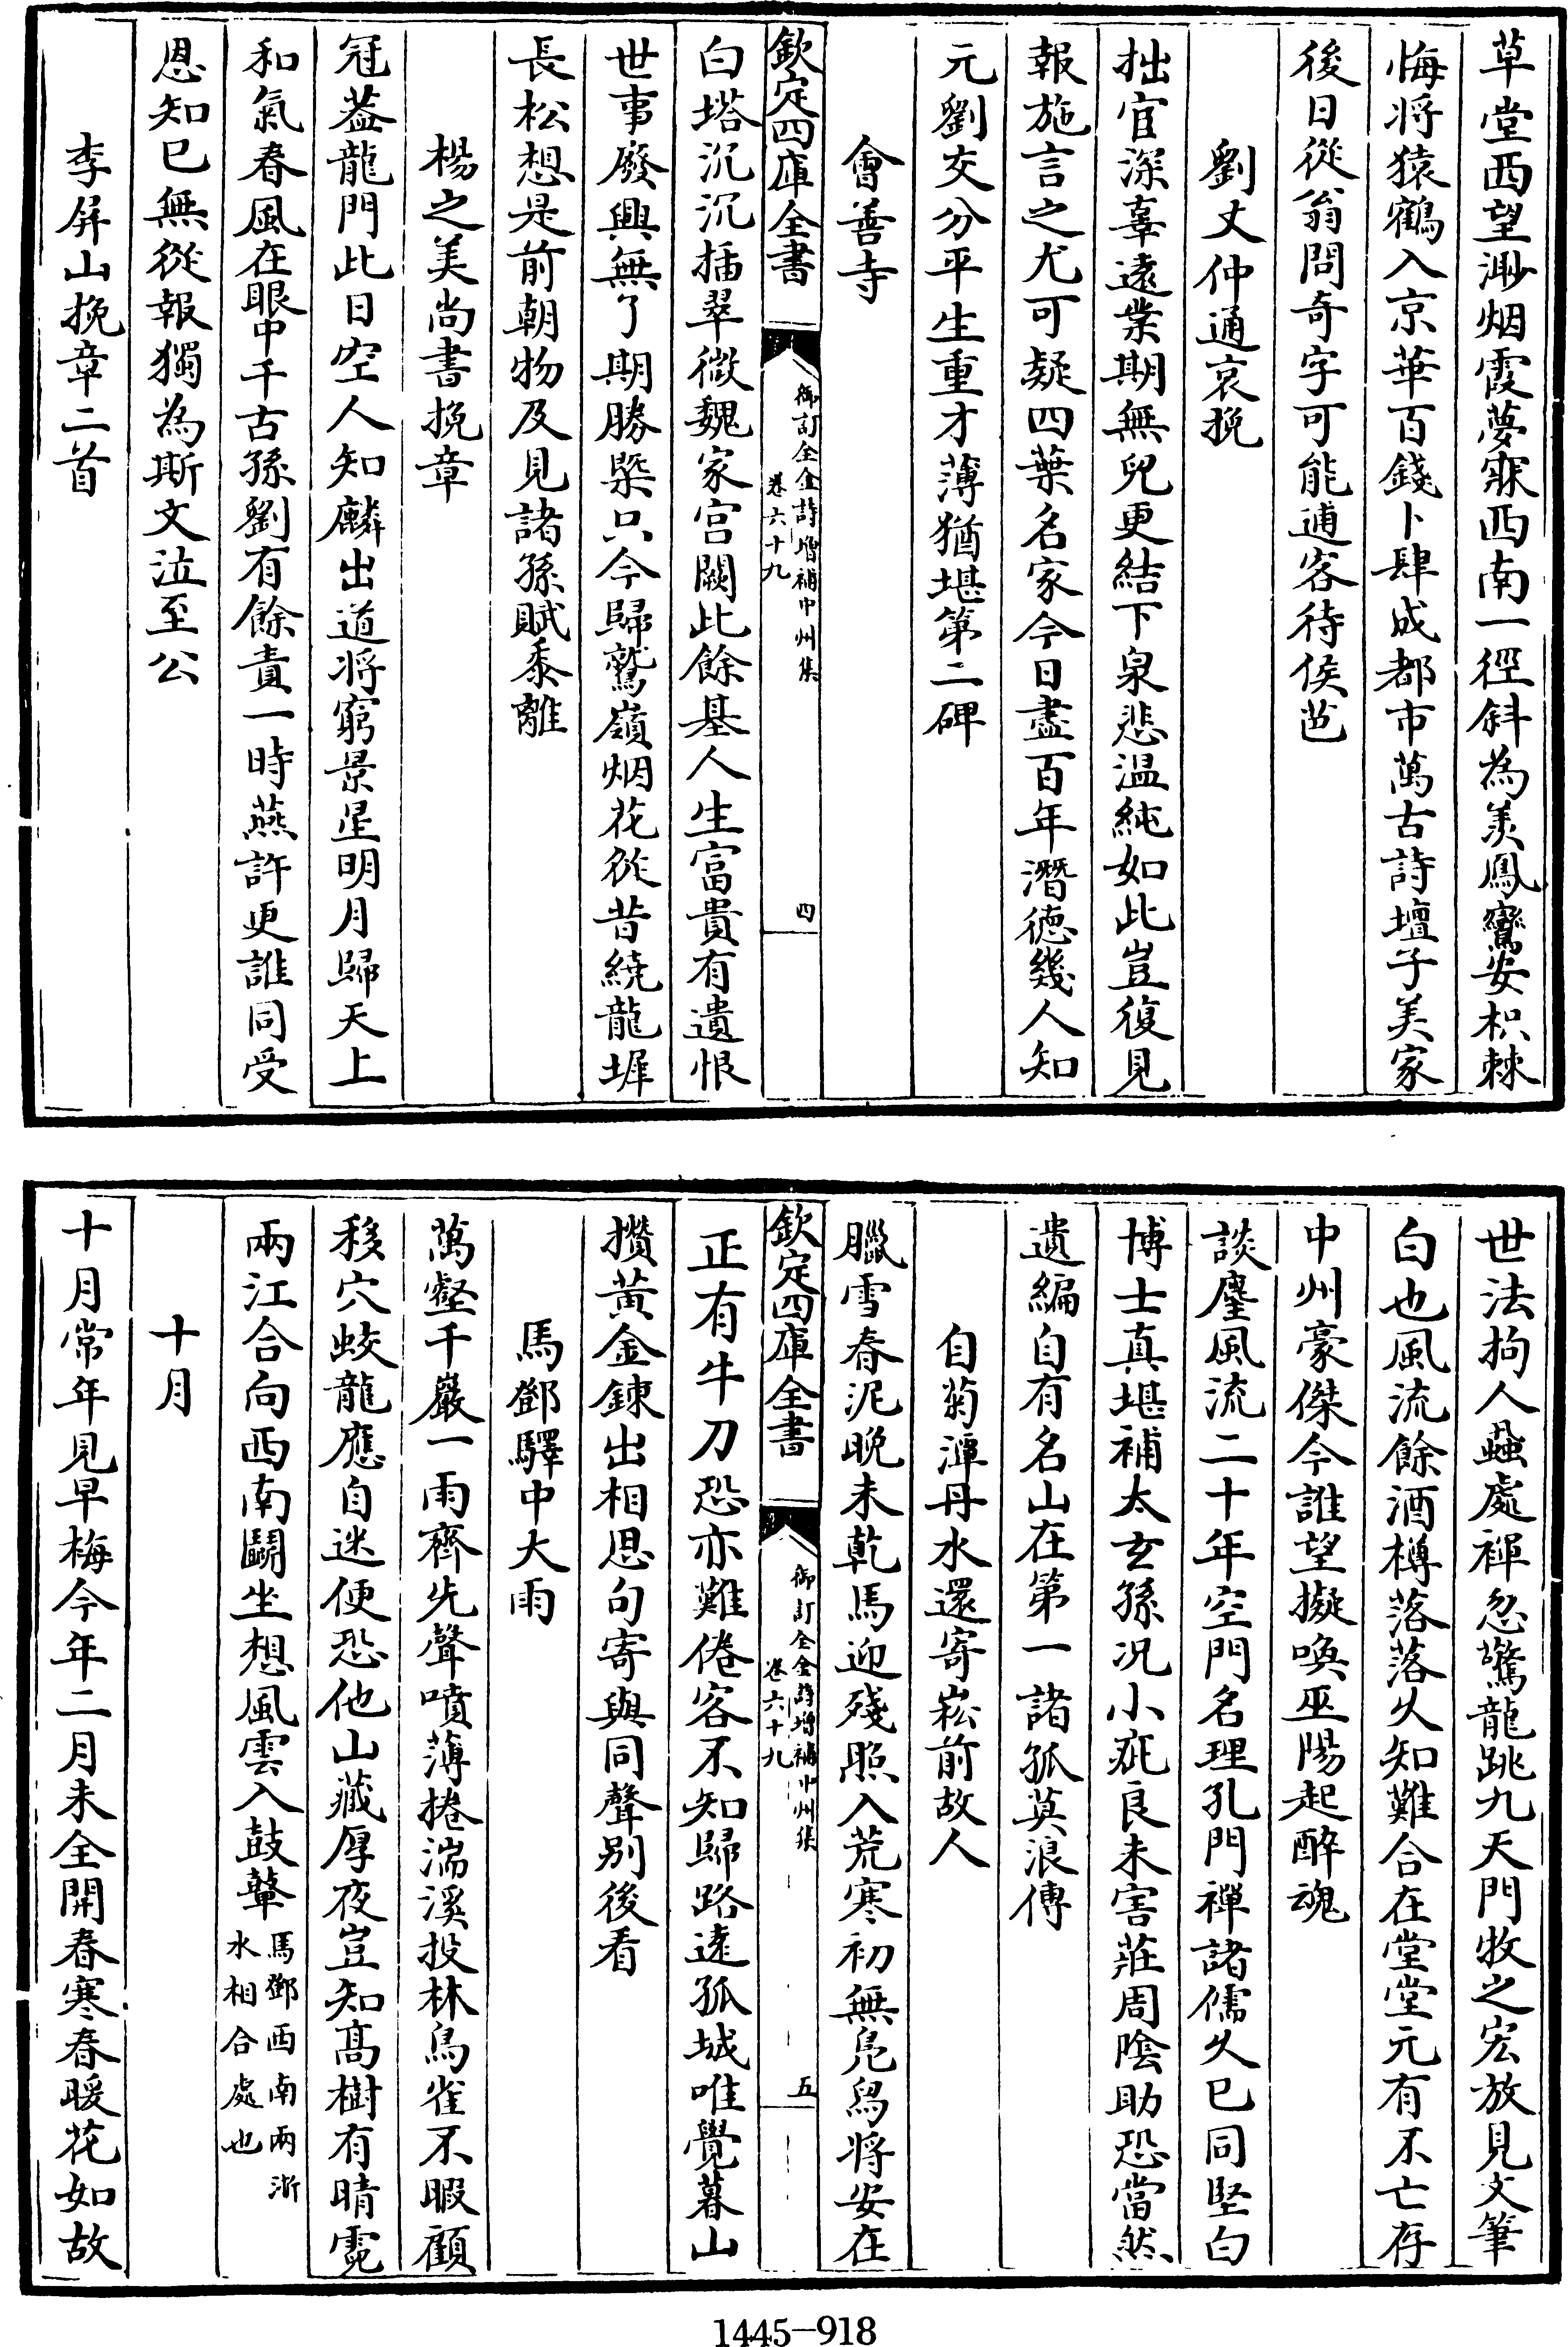 草堂西望渺烟霞夢寐西南一徑斜為羡鳳鸞安枳棘
悔将猿鶴入京華百錢卜肆成都市萬古詩壇子美家
後日從翁問奇字可能逋客待侯芭
劉丈仲通哀挽
拙官深辜遠業期無兒更結下泉悲温純如此豈復見
報施言之尤可疑四葉名家今日盡百年潛徳幾人知
元劉交分平生重才薄猶堪第二碑
會善寺
欽定四庫全書
御訂全金詩增補中州集
卷六十九
四
白塔沉沉插翠微魏家宫闕此餘基人生富貴有遺恨
世事廢興無了期勝槩只今歸鷲嶺烟花從昔繞龍墀
長松想是前朝物及見諸孫賦黍離
楊之美尚書挽章
冠葢龍門此日空人知麟出道将窮景星明月歸天上
和氣春風在眼中千古孫劉有餘責一時燕許更誰同受
恩知已無從報獨為斯文泣至公
李屏山挽章二首
世法拘人蝨處褌忽驚龍跳九天門牧之宏放見文筆
白也風流餘酒樽落落久知難合在堂堂元有不亡存
中州豪傑今誰望擬喚巫陽起醉魂
談麈風流二十年空門名理孔門禪諸儒久已同堅白
博士真堪補太玄孫况小疵良未害莊周陰助恐當然
遺編自有名山在第一諸孤莫浪傳
自菊潭丹水還寄崧前故人
臘雪春泥晚未乾馬迎殘照入荒寒初無凫舄将安在
欽定四庫全書
御訂全金詩增補中州集
卷六十九
五
正有牛刀恐亦難倦客不知歸路逺孤城唯覺暮山
攅黄金錬出相思句寄與同聲别後看
馬鄧驛中大雨
萬壑千巖一雨齊先聲噴薄捲湍溪投林鳥雀不暇顧
移穴蛟龍應自迷便恐他山藏厚夜豈知髙樹有晴霓
兩江合向西南鬭坐想風雲入鼓鼙馬鄧西南兩淅
水相合處也
十月
十月常年見早梅今年二月未全開春寒春暖花如故
1445-918